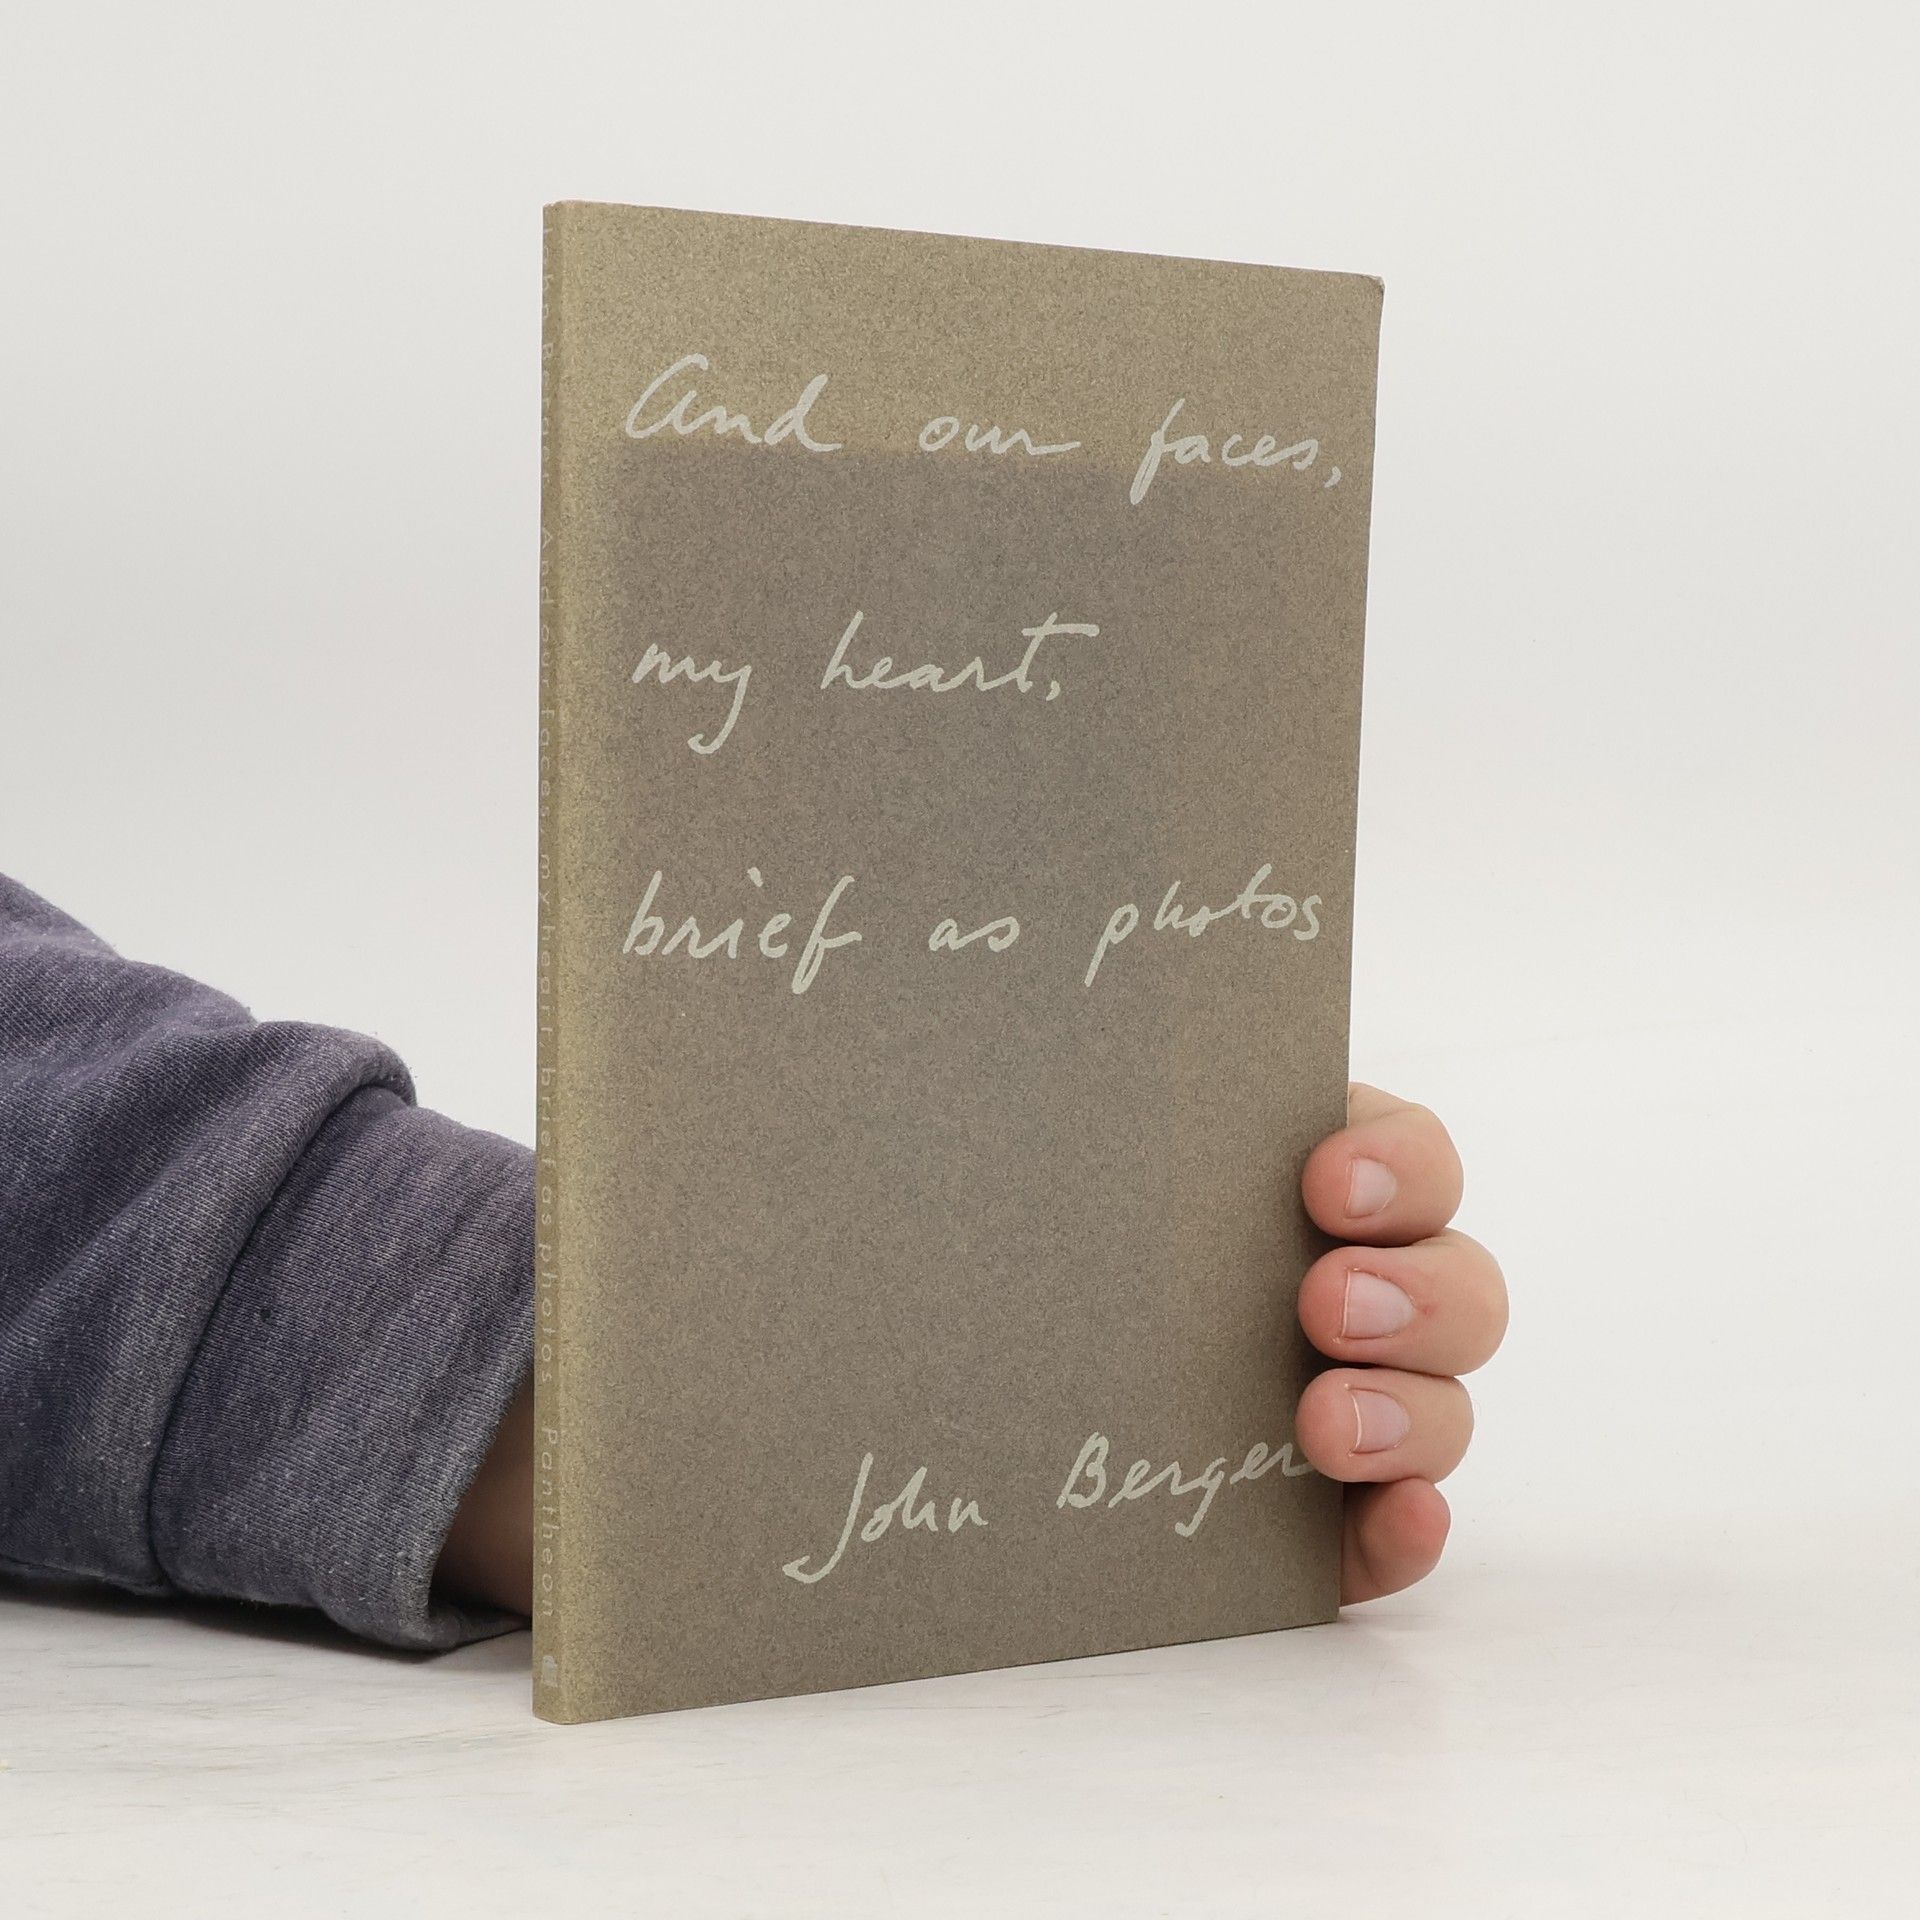 And our faces,
my heart,
brief as photos
John Berger
John Berger And our faces, my heart, brief as photos Pantheon